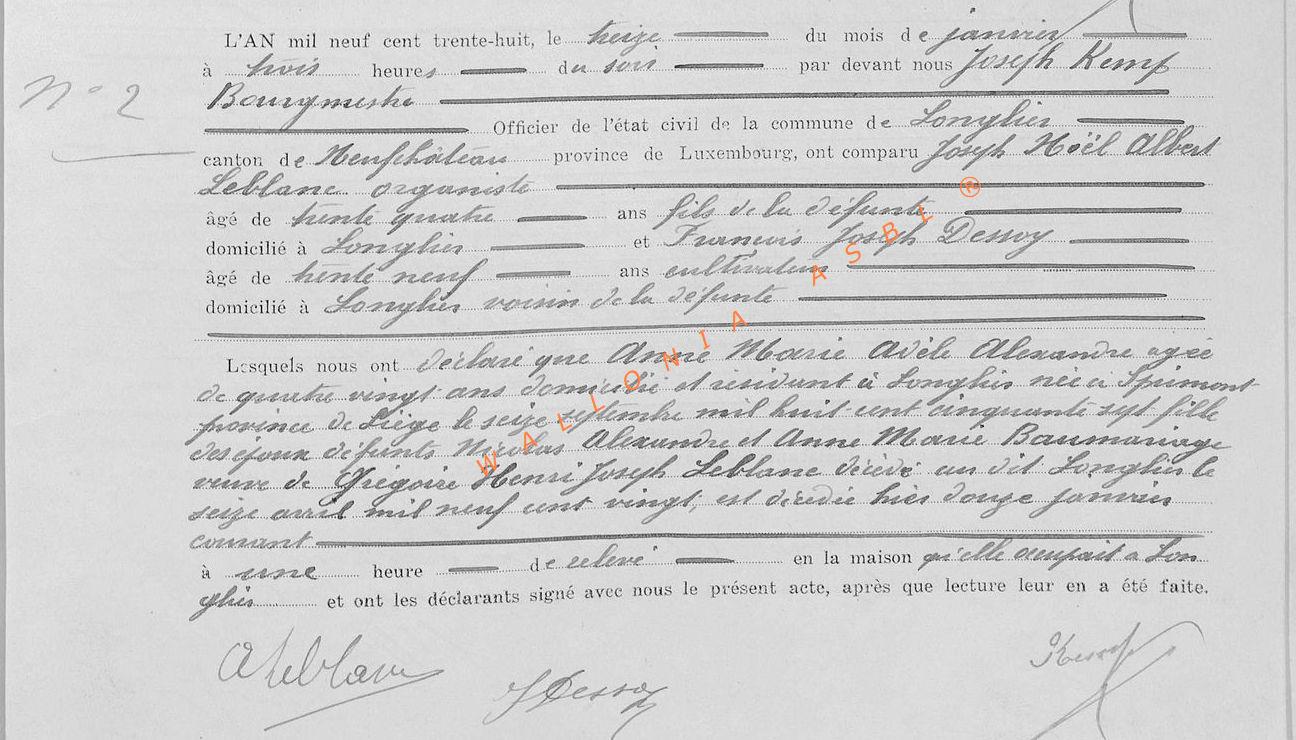 L'AN mil neuf cent trente-huit, le treize du mois de janvier
à trois heures du soir par devant nous Joseph Kemp
N° 2
Bourgmestre
Officier de l'état civil de la commune de Longlier
canton de Neufchâteau province de Luxembourg, ont comparu Joseph Noël Albert
Leblanc organiste
âgé de trente quatre ans fils de la défunte
domicilié à Longlier et François Joseph Dessoy
âgé de trente neuf ans cultivateur
domicilié à Longlier voisin de la défunte
Lesquels nous ont déclaré que Anne Marie Adèle Alexandre agée
de quatre vingt ans domicilié et résidant à Longlier née à Sprimont
province de Liège le seize septembre mil huit cent cinquante sept fille
des époux défunts Nicolas Alexandre et Anne Marie Baumariage
veuve de Grégoire Henri Joseph Leblanc décédé au dit Longlier le
seize avril mil neuf cent vingt, est décédée hier douze janvier
courant
à une heure de relevé en la maison qu'elle occupait a Lon
glier et ont les déclarants signé avec nous le présent acte, après que lecture leur en a été faite.
ALeblanc
JDessoy
Kemp
WALLONIA ASBL ®